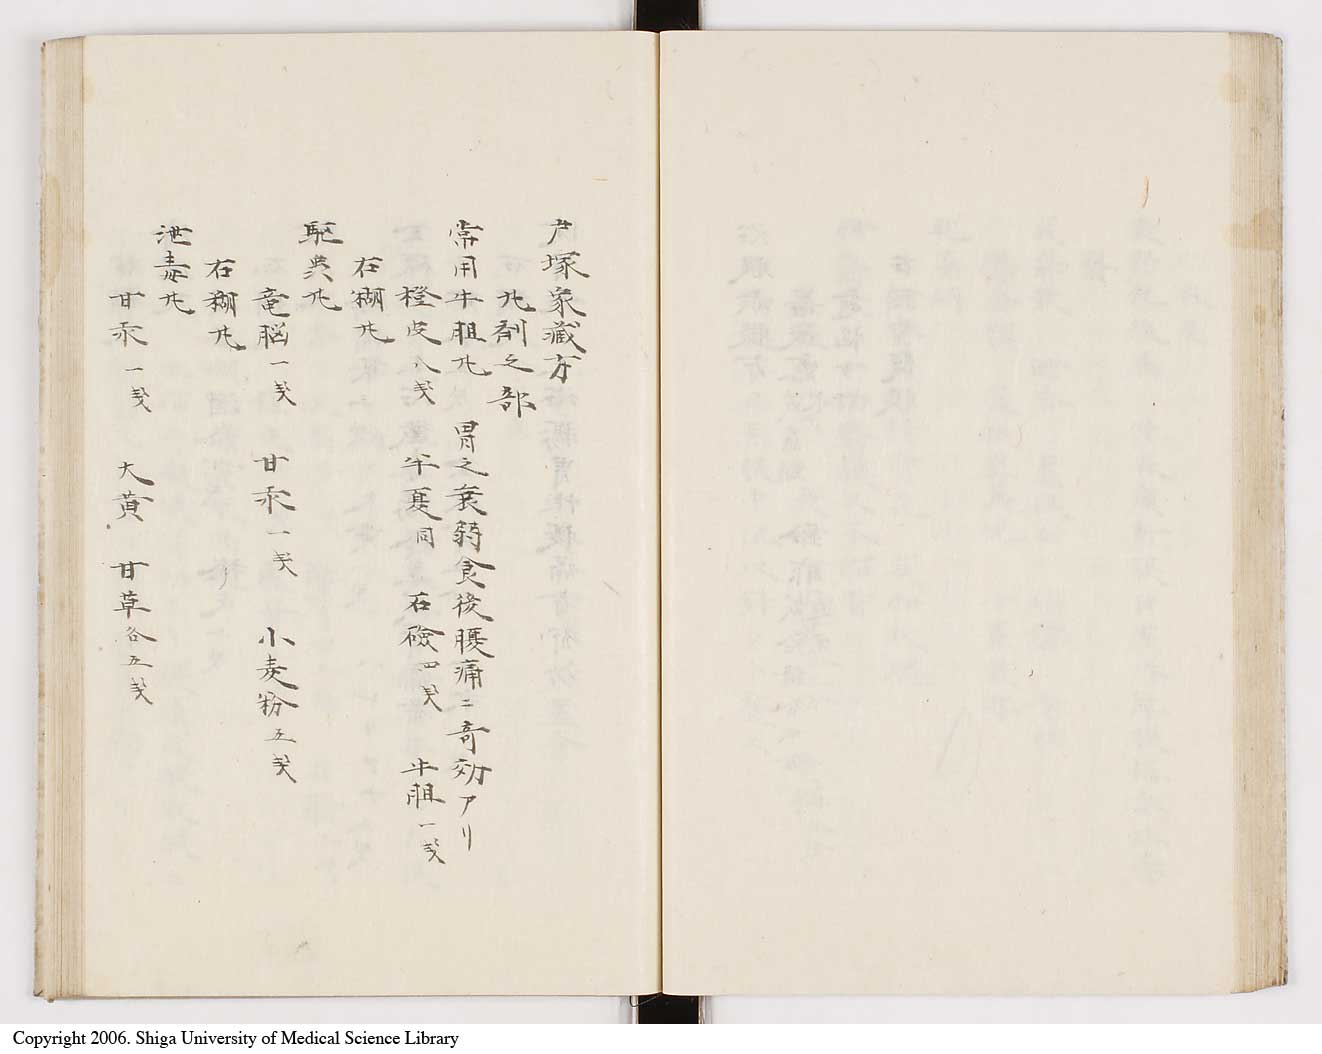 戸塚家藏方
丸剤之部
常用牛胆丸 胃之衰弱食後腹痛ニ奇効アリ
橙皮八戔 半夏同 石鹸四戔 牛胆一戔
右糊丸
駆 丸
竜脳一戔 甘汞一戔 小麦粉五戔
右糊丸
泄毒丸
甘汞一戔 大黄 甘草各五戔
Copyright 2006. Shiga University of Medical Science Library